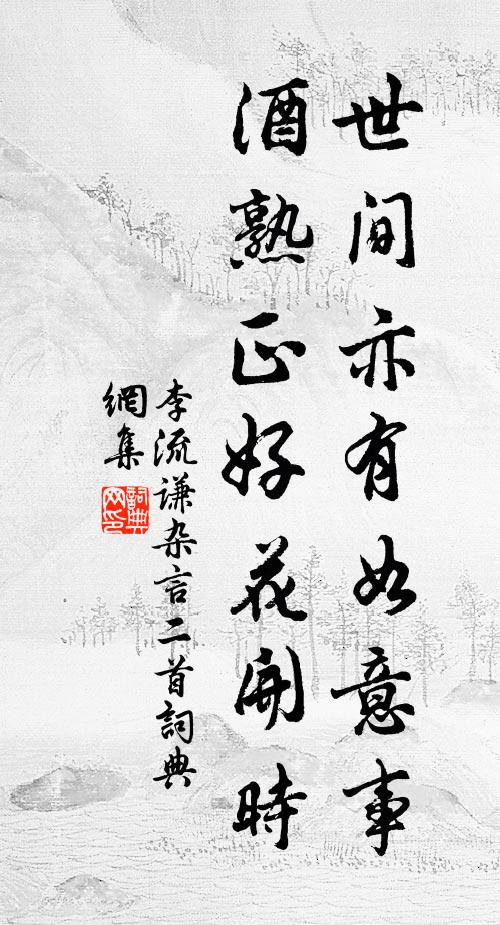 世间亦有如意事
酒熟正好花開時
李流谦杂言二首詞典
網集
詞典
网印